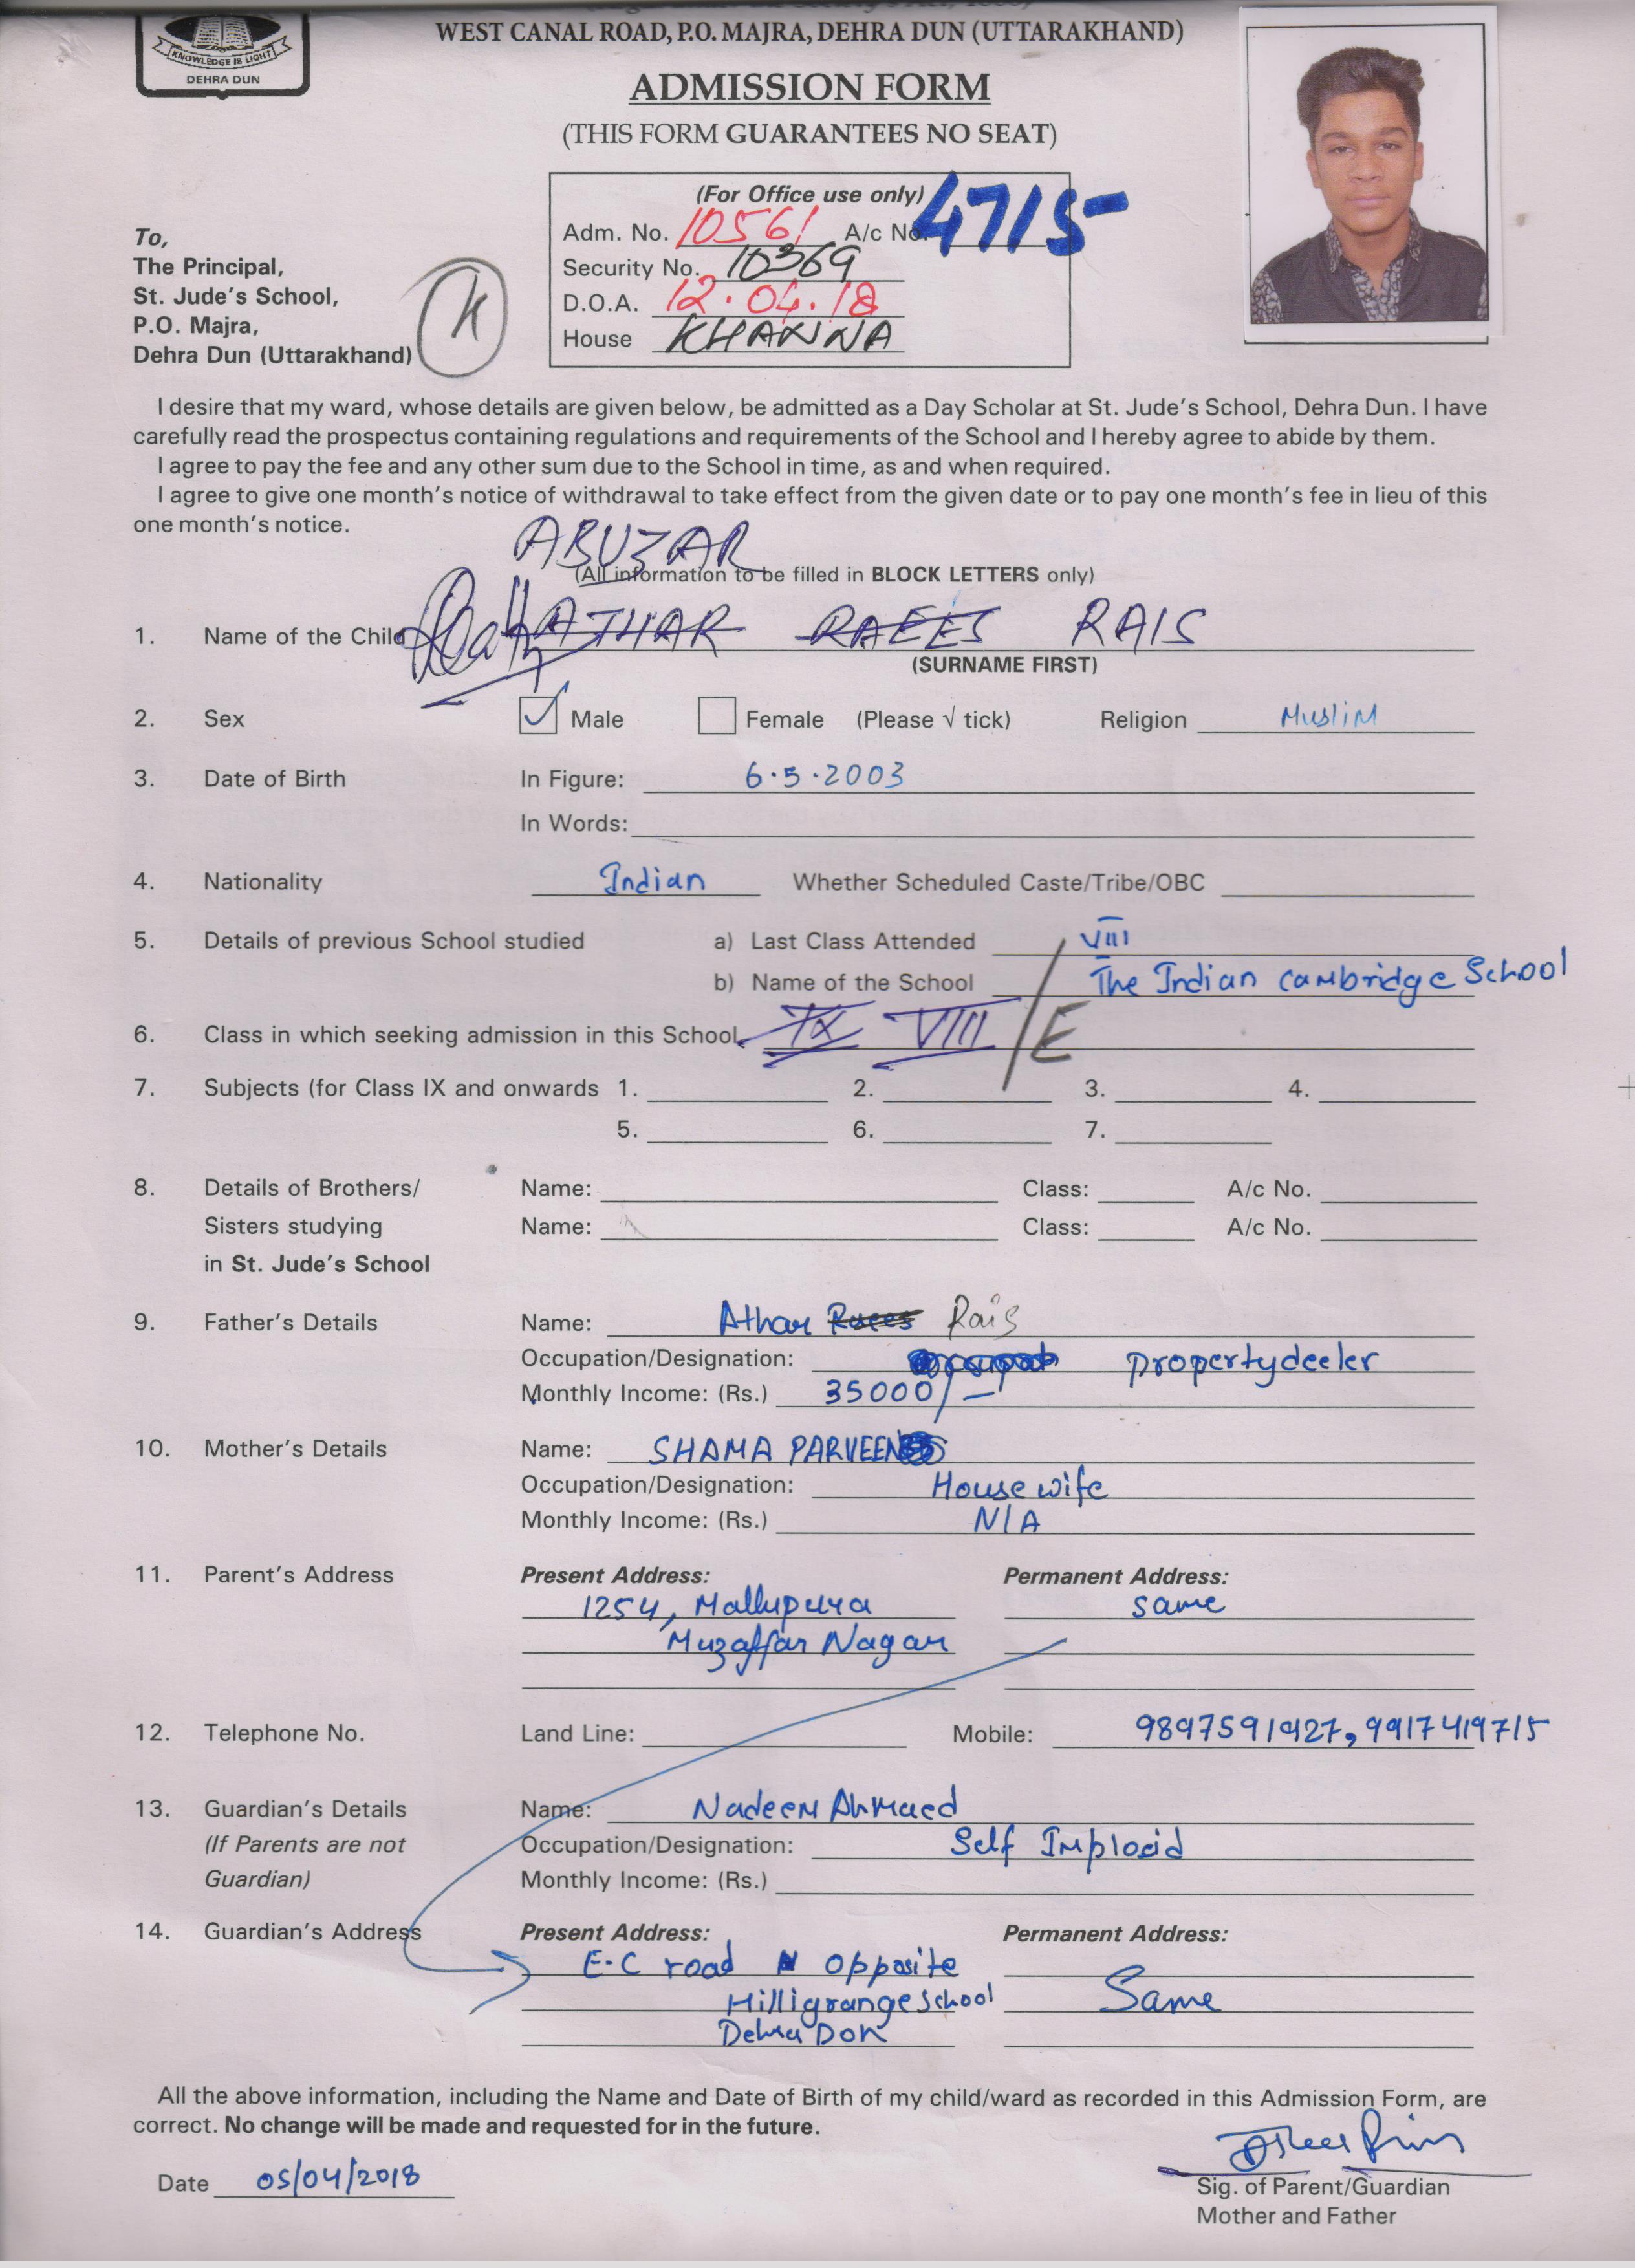 WEST CANAL ROAD, P.O. MAJRA, DEHRA DUN (UTTARAKHAND)
KNOWLEDGE IS LIGHT
DEHRA DUN
ADMISSION FORM
(THIS FORM GUARANTEES NO SEAT)
(For Office use only)
Adm. No. 10561 A/c No. 4715
Security No. 10369
D.O.A. 12.04.18
House KHANNA
To,
The Principal,
St. Jude's School,
P.O. Majra,
Dehra Dun (Uttarakhand)
K
I desire that my ward, whose details are given below, be admitted as a Day Scholar at St. Jude's School, Dehra Dun. I have
carefully read the prospectus containing regulations and requirements of the School and I hereby agree to abide by them.
I agree to pay the fee and any other sum due to the School in time, as and when required.
I agree to give one month's notice of withdrawal to take effect from the given date or to pay one month's fee in lieu of this
one month's notice.
ABUZAR
(All information to be filled in BLOCK LETTERS only)
1. Name of the Child ATHAR RAEES RAIS
(SURNAME FIRST)
2. Sex ✓ Male Female (Please √ tick) Religion MusliM
3. Date of Birth In Figure: 6.5.2003
In Words:
4. Nationality Indian Whether Scheduled Caste/Tribe/OBC
5. Details of previous School studied a) Last Class Attended VIII
b) Name of the School The Indian cambridge School
6. Class in which seeking admission in this School IX VIII / E
7. Subjects (for Class IX and onwards 1. 2. 3. 4.
5. 6. 7.
8. Details of Brothers/ Name: Class: A/c No.
Sisters studying Name: Class: A/c No.
in St. Jude's School
9. Father's Details Name: Athar Raees Rais
Occupation/Designation: propertydeeler
Monthly Income: (Rs.) 35000/-
10. Mother's Details Name: SHAMA PARVEEN
Occupation/Designation: House wife
Monthly Income: (Rs.) N/A
11. Parent's Address Present Address: Permanent Address:
1254, Mallupura same
Muzaffar Nagar
12. Telephone No. Land Line: Mobile: 9897591927, 9917419715
13. Guardian's Details Name: Nadeem Ahmaed
(If Parents are not Occupation/Designation: Self Imploid
Guardian) Monthly Income: (Rs.)
14. Guardian's Address Present Address: Permanent Address:
E.C road opposite
Hilligrange School Same
Dehra Don
All the above information, including the Name and Date of Birth of my child/ward as recorded in this Admission Form, are
correct. No change will be made and requested for in the future.
Date 05/04/2018
Sig. of Parent/Guardian
Mother and Father